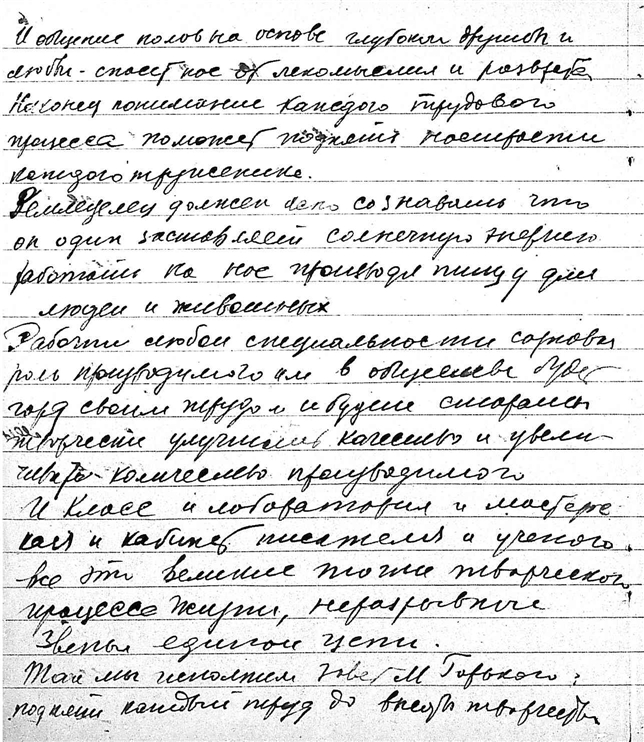 И общение полов на основе глубокой дружбы и
любви - спасет нас от легкомыслия и разврата
Наконец понимание каждого трудового
процесса поможет поднять
каждого труженика.
Земледелец должен ясно сознавать что
он один заставляет солнечную энергию
работать на нас производя пищу для
людей и животных
Рабочий любой специальности сознавая
роль производимого им в обществе будет
горд своим трудом и будет стараться
творчески улучшить качество и увели-
чивать количество производимого
И класс и лоборатория и мастерс
кая и кабинет писателя и ученого
все это великие творческого
процесса жизни, неразрывные
Звенья единой цепи.
Так мы исполним завет М Горького:
поднять каждый труд до высоты творчества